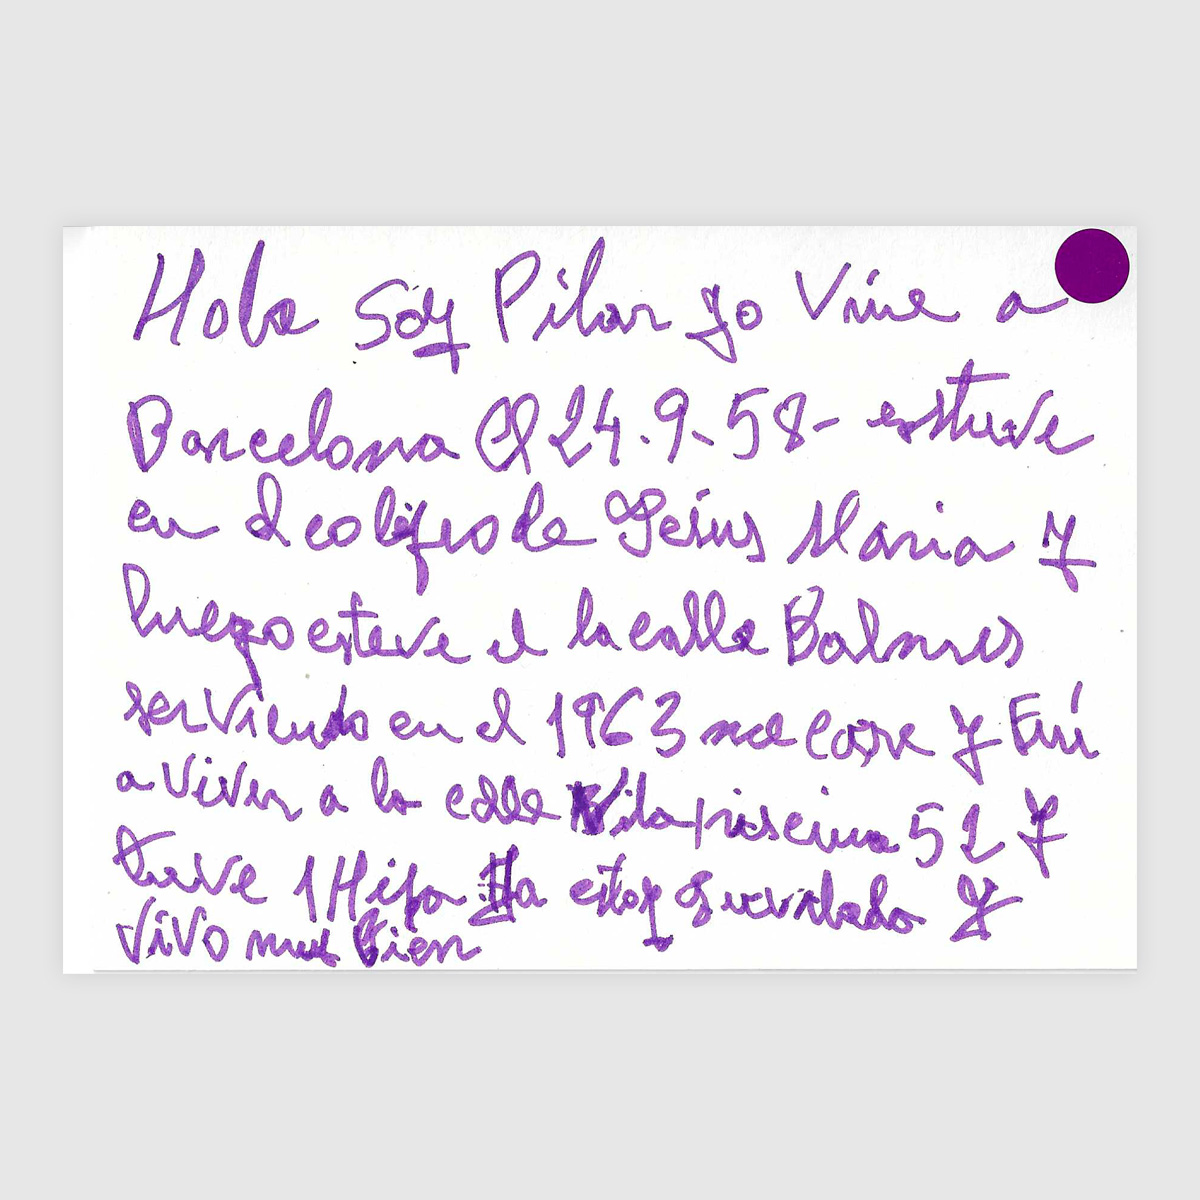 Hola Soy Pilar yo Vine a
Barcelona El 24.9-58- estuve
en el colegio de Jesús Maria y
luego esteve el la calle Balmes
serviendo en el 1963 me case y Fui
a vivir a la calle Vilapiscina 52 y
tuve 1 Hija Ya estoy
vivo mui bien